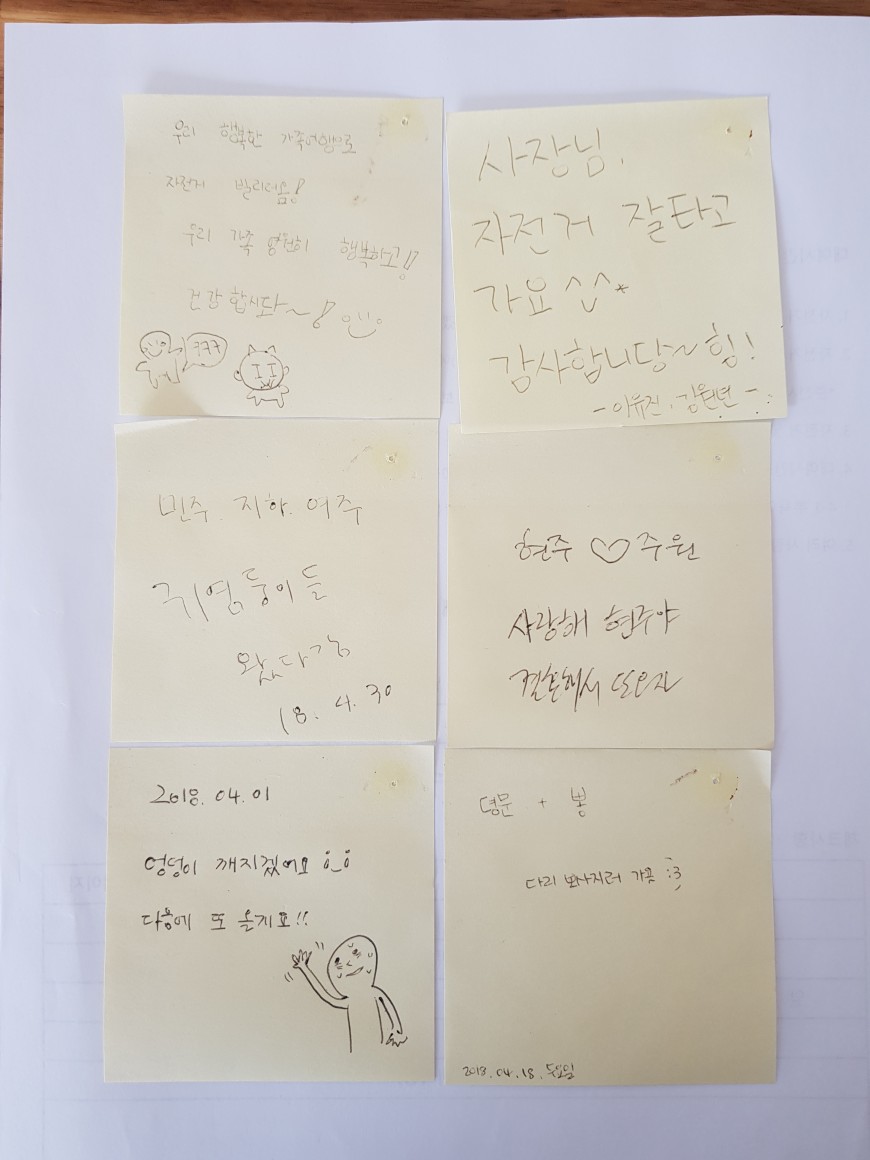 우리 행복한 가족여행으로
자전거 빌리러옴!
우리 가족 영원히 행복하고!!
건강 합시다~!
ㅋㅋㅋ
사장님.
자전거 잘타고
가요 ^^*
감사합니당~ 힘!
- 이유진. 김원년 -
민주. 지하. 여주
귀염둥이들
왔다감
18. 4. 30
현주 ♡ 주원
사랑해 현주야
결혼해서 또오자
2018. 04. 01
엉덩이 깨지겠어요
다음에 또 올게요!!
명문 + 뽕
다리 뽀사지러 가욧 :3
2013. 04. 18.